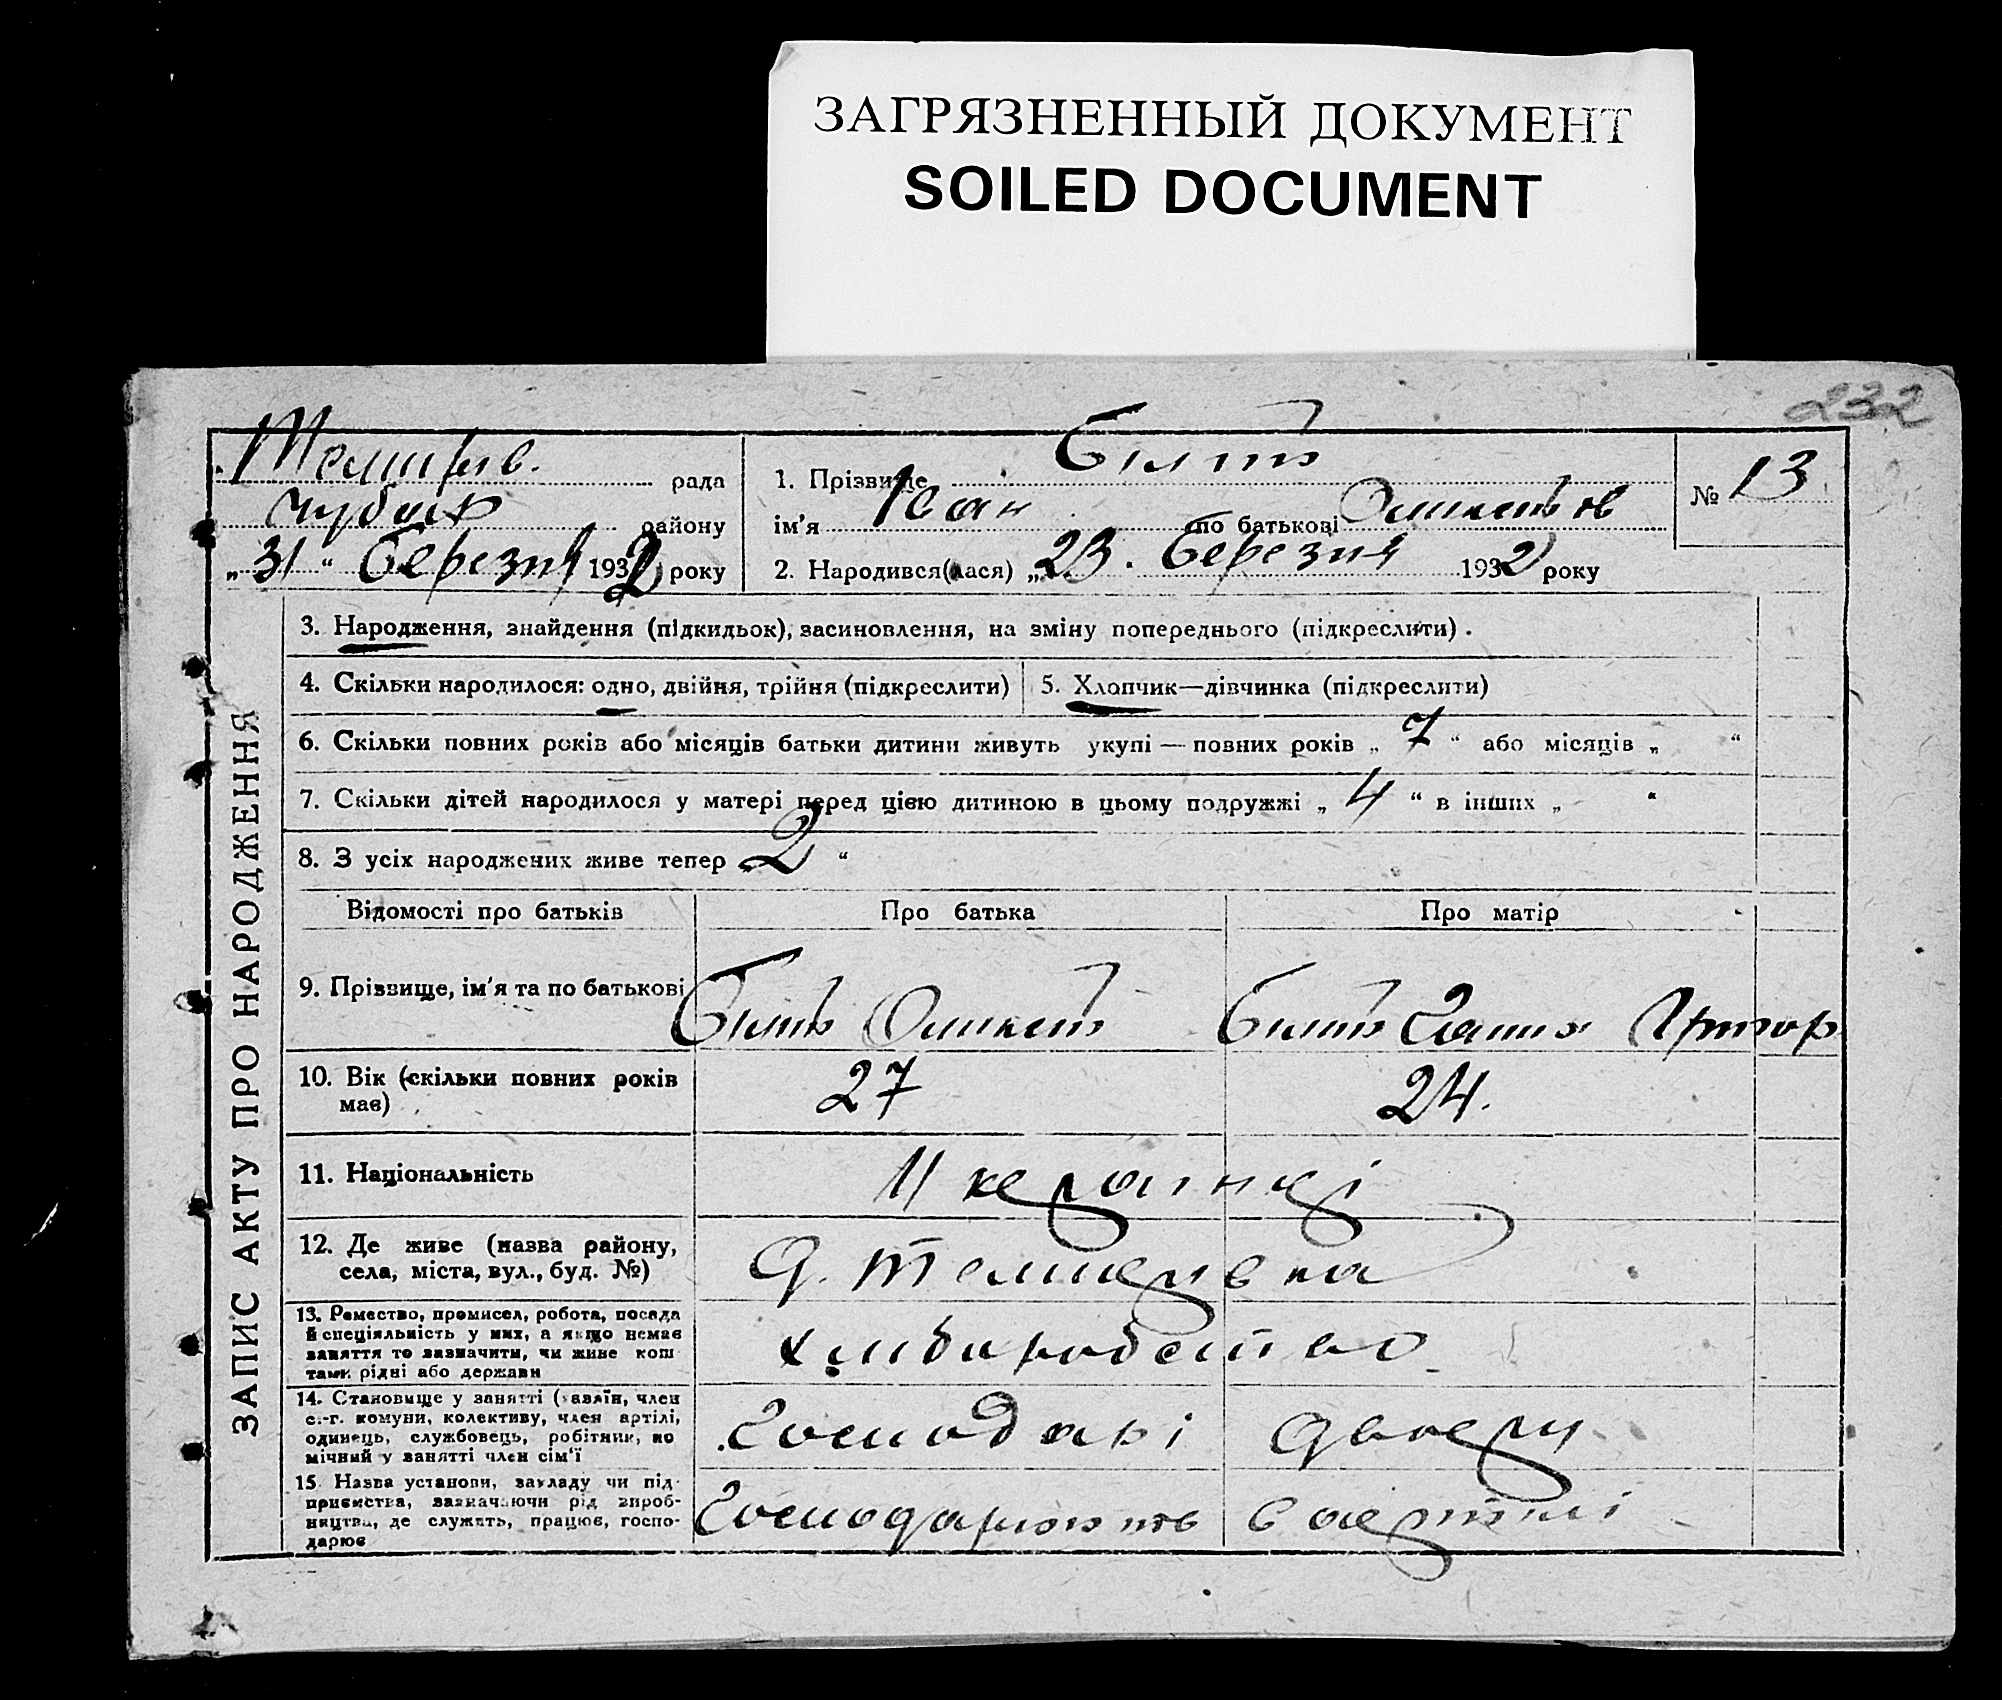 ЗАГРЯЗНЕННЫЙ ДОКУМЕНТ
SOILED DOCUMENT
232
рада
району
„31“ березня 1932 року
1. Прізвище Білий
ім'я Іван по батькові
2. Народився(лася) „23. березня 1932 року
№ 13
ЗАПИС АКТУ ПРО НАРОДЖЕННЯ
3. Народження, знайдення (підкидьок), засиновлення, на зміну попереднього (підкреслити).
4. Скільки народилося: одно, двійня, трійня (підкреслити)
5. Хлопчик—дівчинка (підкреслити)
6. Скільки повних років або місяців батьки дитини живуть укупі — повних років „ 7 “ або місяців „ “
7. Скільки дітей народилося у матері перед цією дитиною в цьому подружжі „ 4 “ в інших „ “
8. З усіх народжених живе тепер „ 2 “
Відомості про батьків
Про батька
Про матір
9. Прізвище, ім'я та по батькові
10. Вік (скільки повних років
має)
27
24.
11. Національність
Українці
12. Де живе (назва району,
села, міста, вул., буд. №)
13. Ремество, промисел, робота, посада
й спеціяльність у них, а якщо немає
заняття то зазначити, чи живе кош
тами рідні або держави
хліборобство
14. Становище у занятті (хазяїн, член
с.-г. комуни, колективу, член артілі,
одинець, службовець, робітник, по
мічний у занятті член сім'ї
Господарі двору
15 Назва установи, закладу чи під-
приємства, зазначаючи рід вироб-
ництва, де служить, працює, госпо-
дарює
Господарюють в артілі